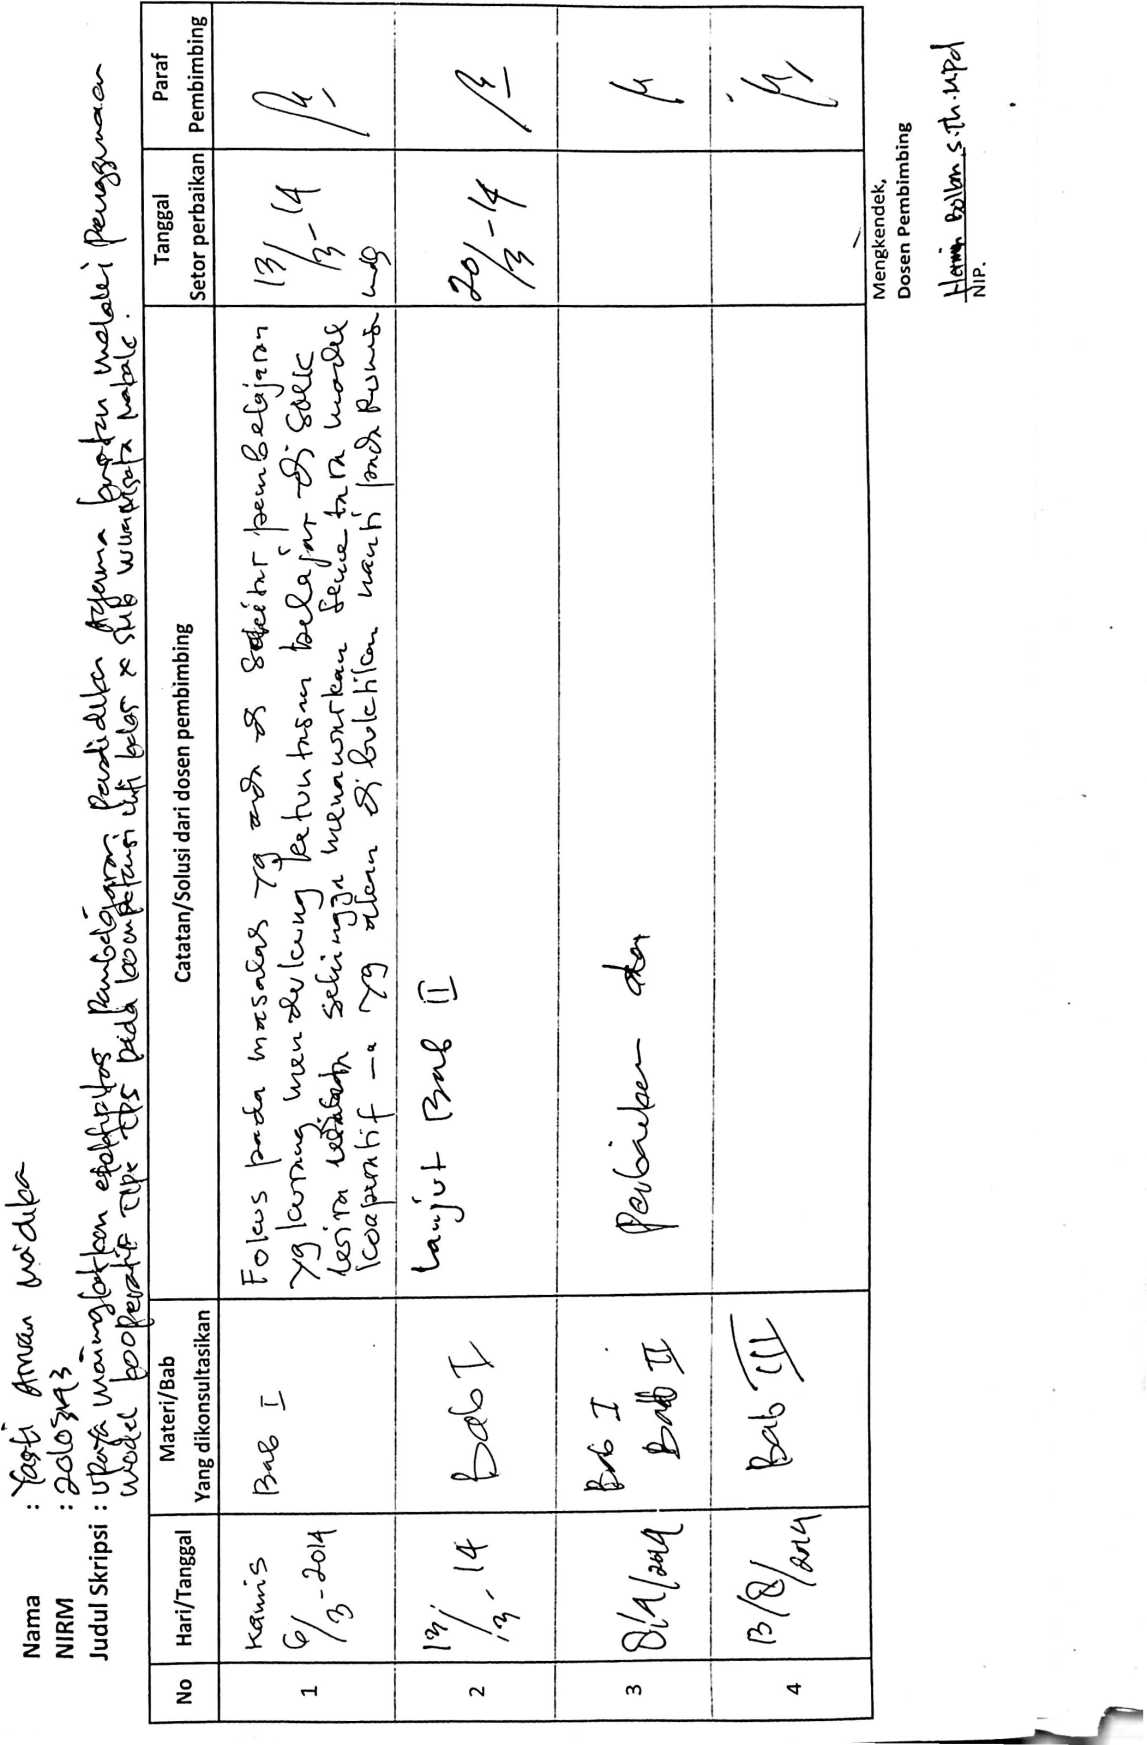 Nama : Yasti Arnan Madika
NIRM : 20103193
Judul Skripsi : Upaya meningkatkan efektifitas Pembelajaran Pendidikan Agama Kristen melalui Penggunaan
model kooperatif Tipe TPS pada kompetensi inti kelas X SMK Makale.
No
Hari/Tanggal
Materi/Bab
Yang dikonsultasikan
Catatan/Solusi dari dosen pembimbing
Tanggal
Setor perbaikan
Paraf
Pembimbing
1
Kamis
6/3-2014
Bab I
Fokus pada masalah yg ada di sekitar pembelajaran
yg kurang mendukung ketuntasan belajar di SMK
sehingga menawarkan sementara model
kooperatif yg akan dibuktikan nanti pada
13/3-14
2
13/3-14
Bab I
Lanjut Bab II
20/3-14
3
Bab I
Bab II
Perbaikan
4
Bab III
Mengkendek,
Dosen Pembimbing
S.Th.M.Pd
NIP.